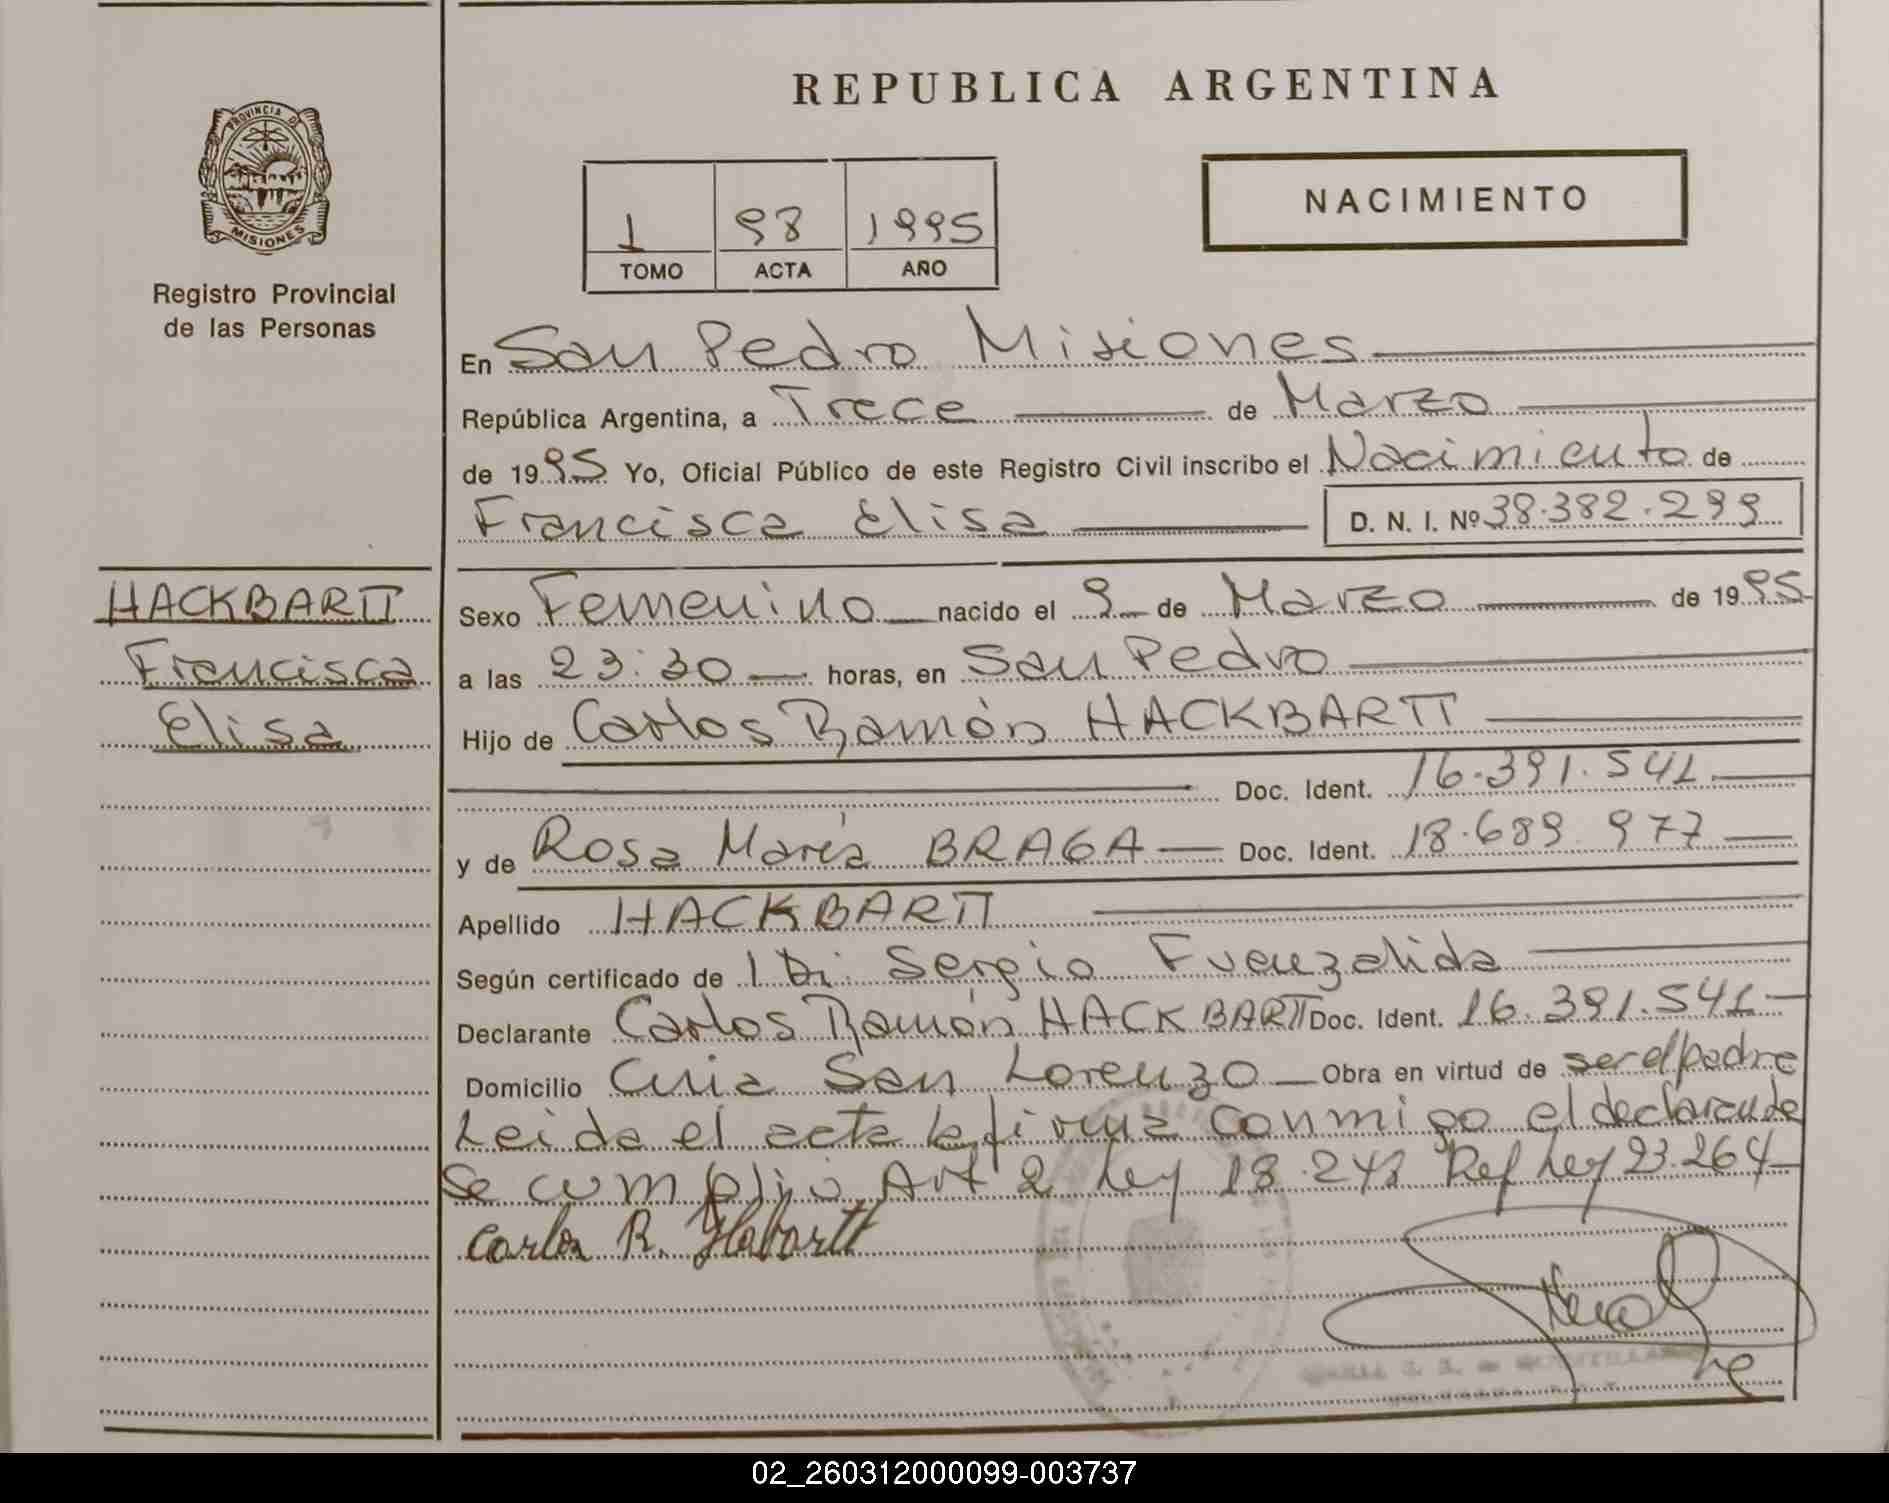 REPUBLICA ARGENTINA
PROVINCIA DE
MISIONES
Registro Provincial
de las Personas
NACIMIENTO
1 98 1995
TOMO ACTA AÑO
En San Pedro Misiones
República Argentina, a Trece de Marzo
de 1995 Yo, Oficial Público de este Registro Civil inscribo el Nacimiento de
Francisca Elisa D. N. I. Nº 38.382.299
HACKBARTT
Francisca
Elisa
Sexo Femenino nacido el 9 de Marzo de 1995
a las 23:30 horas, en San Pedro
Hijo de Carlos Ramón HACKBARTT
Doc. Ident. 16.391.541
y de Rosa María BRAGA Doc. Ident. 18.689.977
Apellido HACKBARTT
Según certificado de Sergio Fuenzalida
Declarante Carlos Ramón HACKBARTT Doc. Ident. 16.391.541
Domicilio San Lorenzo Obra en virtud de ser el padre
Leida el acta la firma conmigo el declarante
Se cumplio Art 2 Ley 18.248 Ref Ley 23.264
Carlos R.
02_260312000099-003737